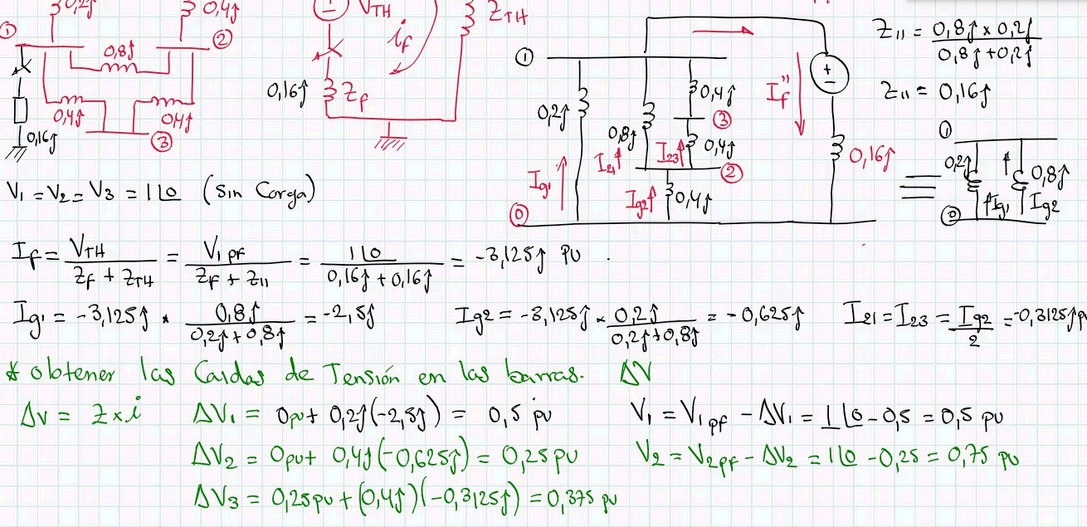 0,2j 0,4j
① ②
0,8j
0,4j 0,4j
③
0,16j
V_TH Z_TH
i_f
0,16j Z_f
①
0,2j 0,8j 0,4j
③
0,4j
I_21 I_23
②
I_g1 I_g2 0,4j
⓪
I_f''
+
-
0,16j
Z_11 = \frac{0,8j x 0,2j}{0,8j + 0,2j}
Z_11 = 0,16j
①
0,2j 0,8j
I_g1 I_g2
⓪
V_1 = V_2 = V_3 = 1∠0 (Sin Carga)
I_f = \frac{V_TH}{Z_f + Z_TH} = \frac{V_1 pf}{Z_f + Z_11} = \frac{1∠0}{0,16j + 0,16j} = -3,125j pu .
I_g1 = -3,125j * \frac{0,8j}{0,2j + 0,8j} = -2,5j I_g2 = -3,125j * \frac{0,2j}{0,2j + 0,8j} = -0,625j I_21 = I_23 = \frac{I_g2}{2} = -0,3125j pu
* obtener las Caidas de Tensión en las barras. ΔV
ΔV = Z x i ΔV_1 = 0pu + 0,2j(-2,5j) = 0,5 pu V_1 = V_1pf - ΔV_1 = 1∠0 - 0,5 = 0,5 pu
ΔV_2 = 0pu + 0,4j(-0,625j) = 0,25 pu V_2 = V_2pf - ΔV_2 = 1∠0 - 0,25 = 0,75 pu
ΔV_3 = 0,25 pu + (0,4j)(-0,3125j) = 0,375 pu